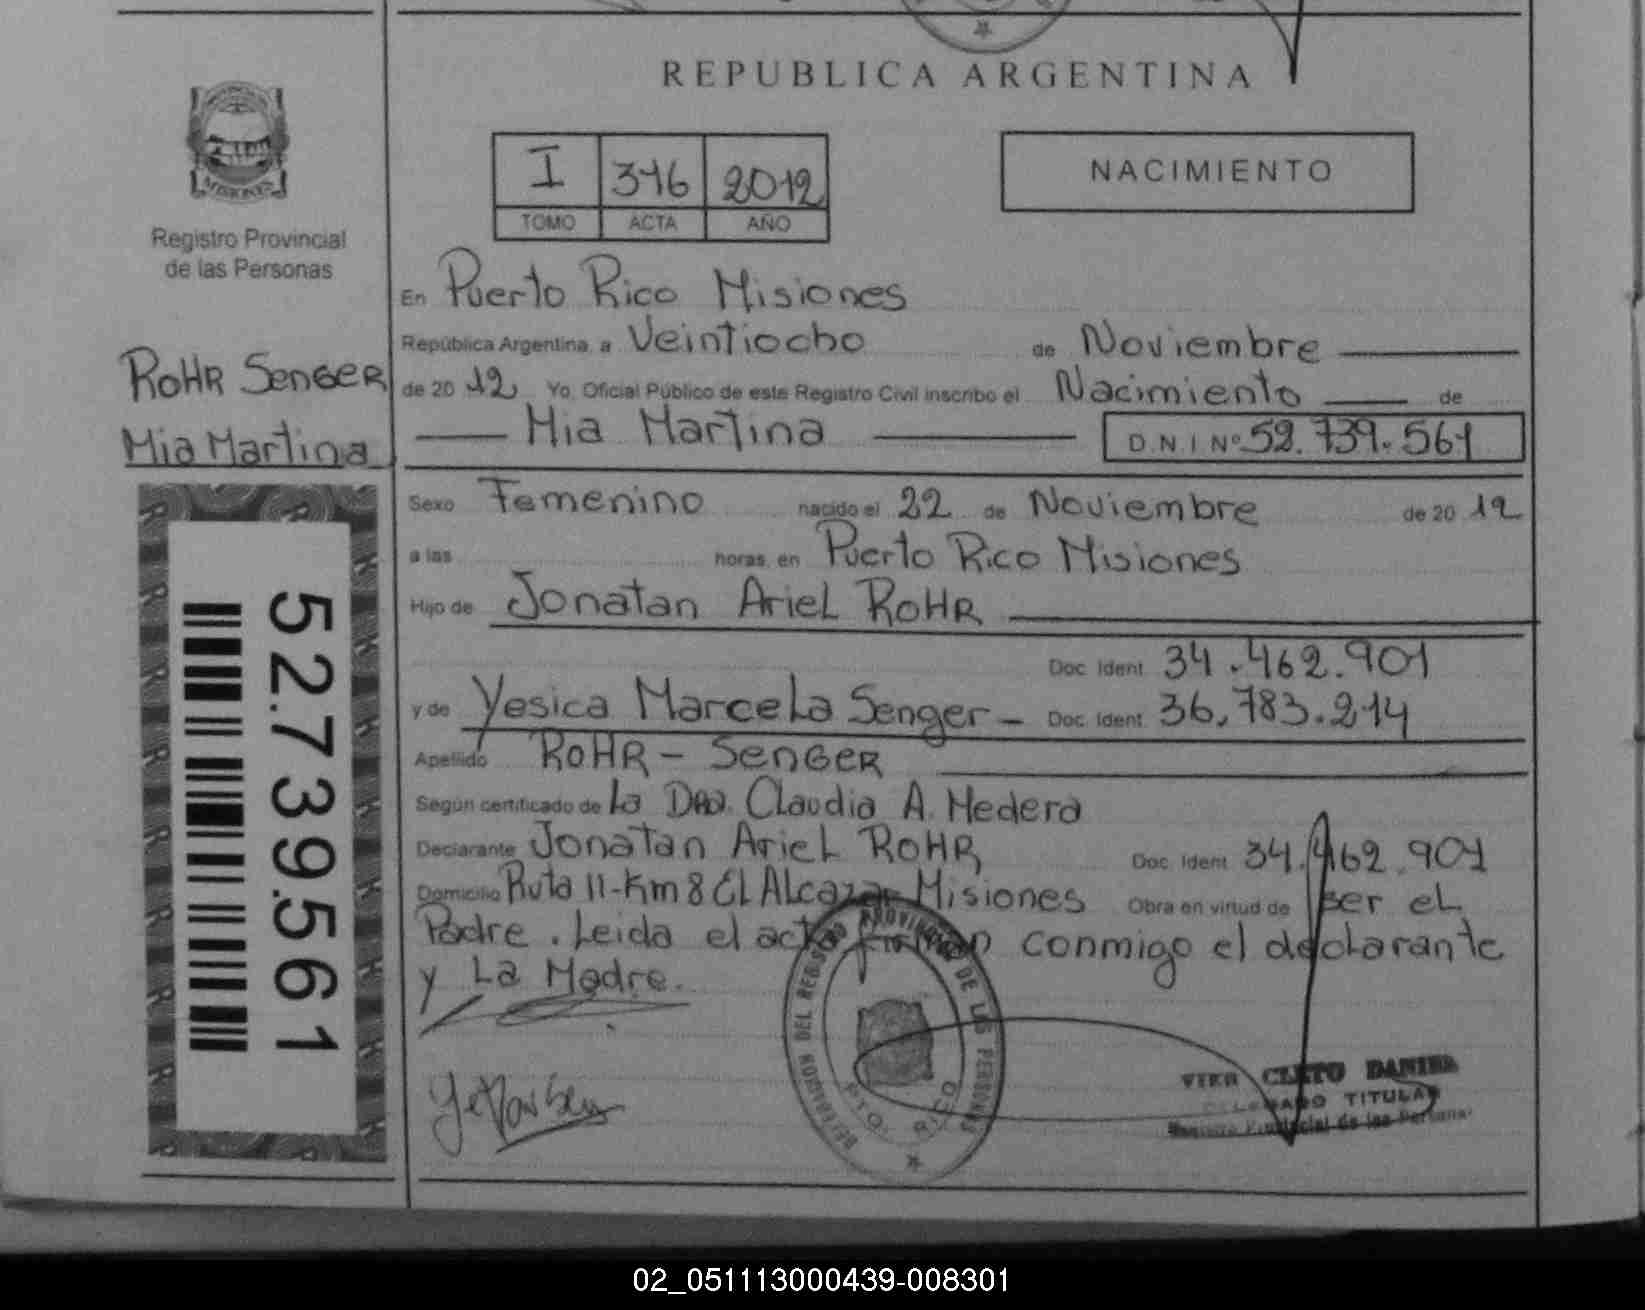 REPUBLICA ARGENTINA
MISIONES
Registro Provincial
de las Personas
ROHR SENGER
Mia Martina
52.739.561
I 346 2012
TOMO ACTA AÑO
NACIMIENTO
En Puerto Rico Misiones
República Argentina, a Veintiocho de Noviembre
de 2012 Yo, Oficial Público de este Registro Civil inscribo el Nacimiento de
Mia Martina D.N.I Nº 52.739.561
Sexo Femenino nacido el 22 de Noviembre de 2012
a las horas, en Puerto Rico Misiones
Hijo de Jonatan Ariel ROHR
Doc. Ident. 34.462.901
y de Yesica Marcela Senger - Doc. Ident. 36.783.214
Apellido ROHR - SENGER
Según certificado de La Dra. Claudia A. Medera
Declarante Jonatan Ariel ROHR Doc. Ident. 34.462.901
Domicilio Ruta 11-Km 8 El Alcazar Misiones Obra en virtud de ser el
Padre. Leida el acta firman conmigo el declarante
y La Madre.
DEL REGISTRO PROVINCIAL DE LAS PERSONAS
PTO. RICO
CLETO DANIEL
TITULAR
Registro Provincial de las Personas
02_051113000439-008301